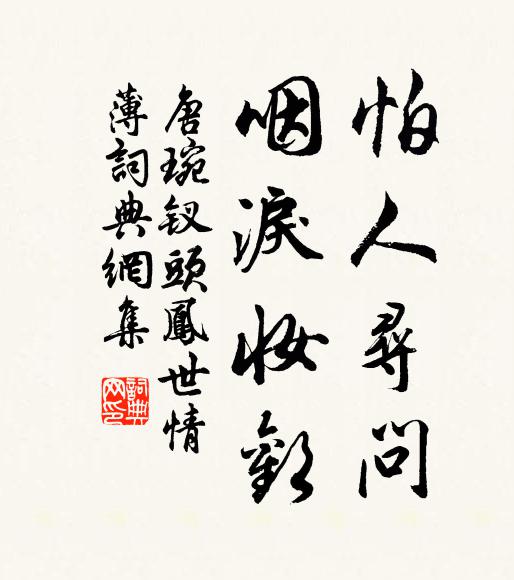 怕人尋問
咽淚妝歡
唐琬釵頭鳳世情
薄詞典網集
詞典
网印